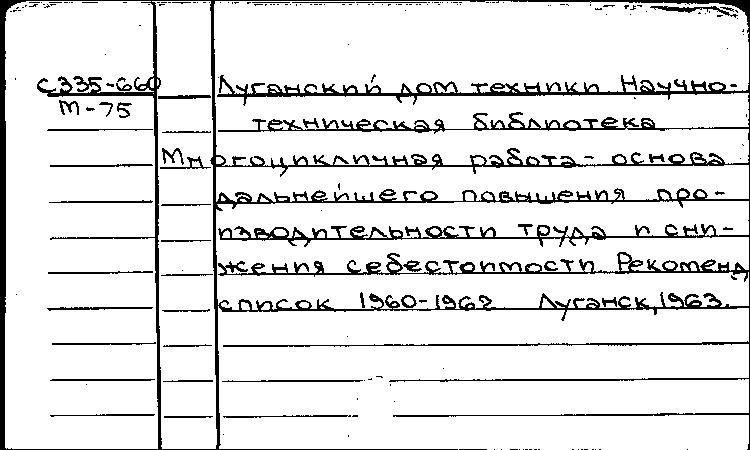 С335-660
М-75
Луганский дом техники Научно-
техническая библиотека
Многоцикличная работа - основа
дальнейшего повышения про-
изводительности труда и сни-
жения себестоимости Рекоменд
список 1960-1962 Луганск, 1963.